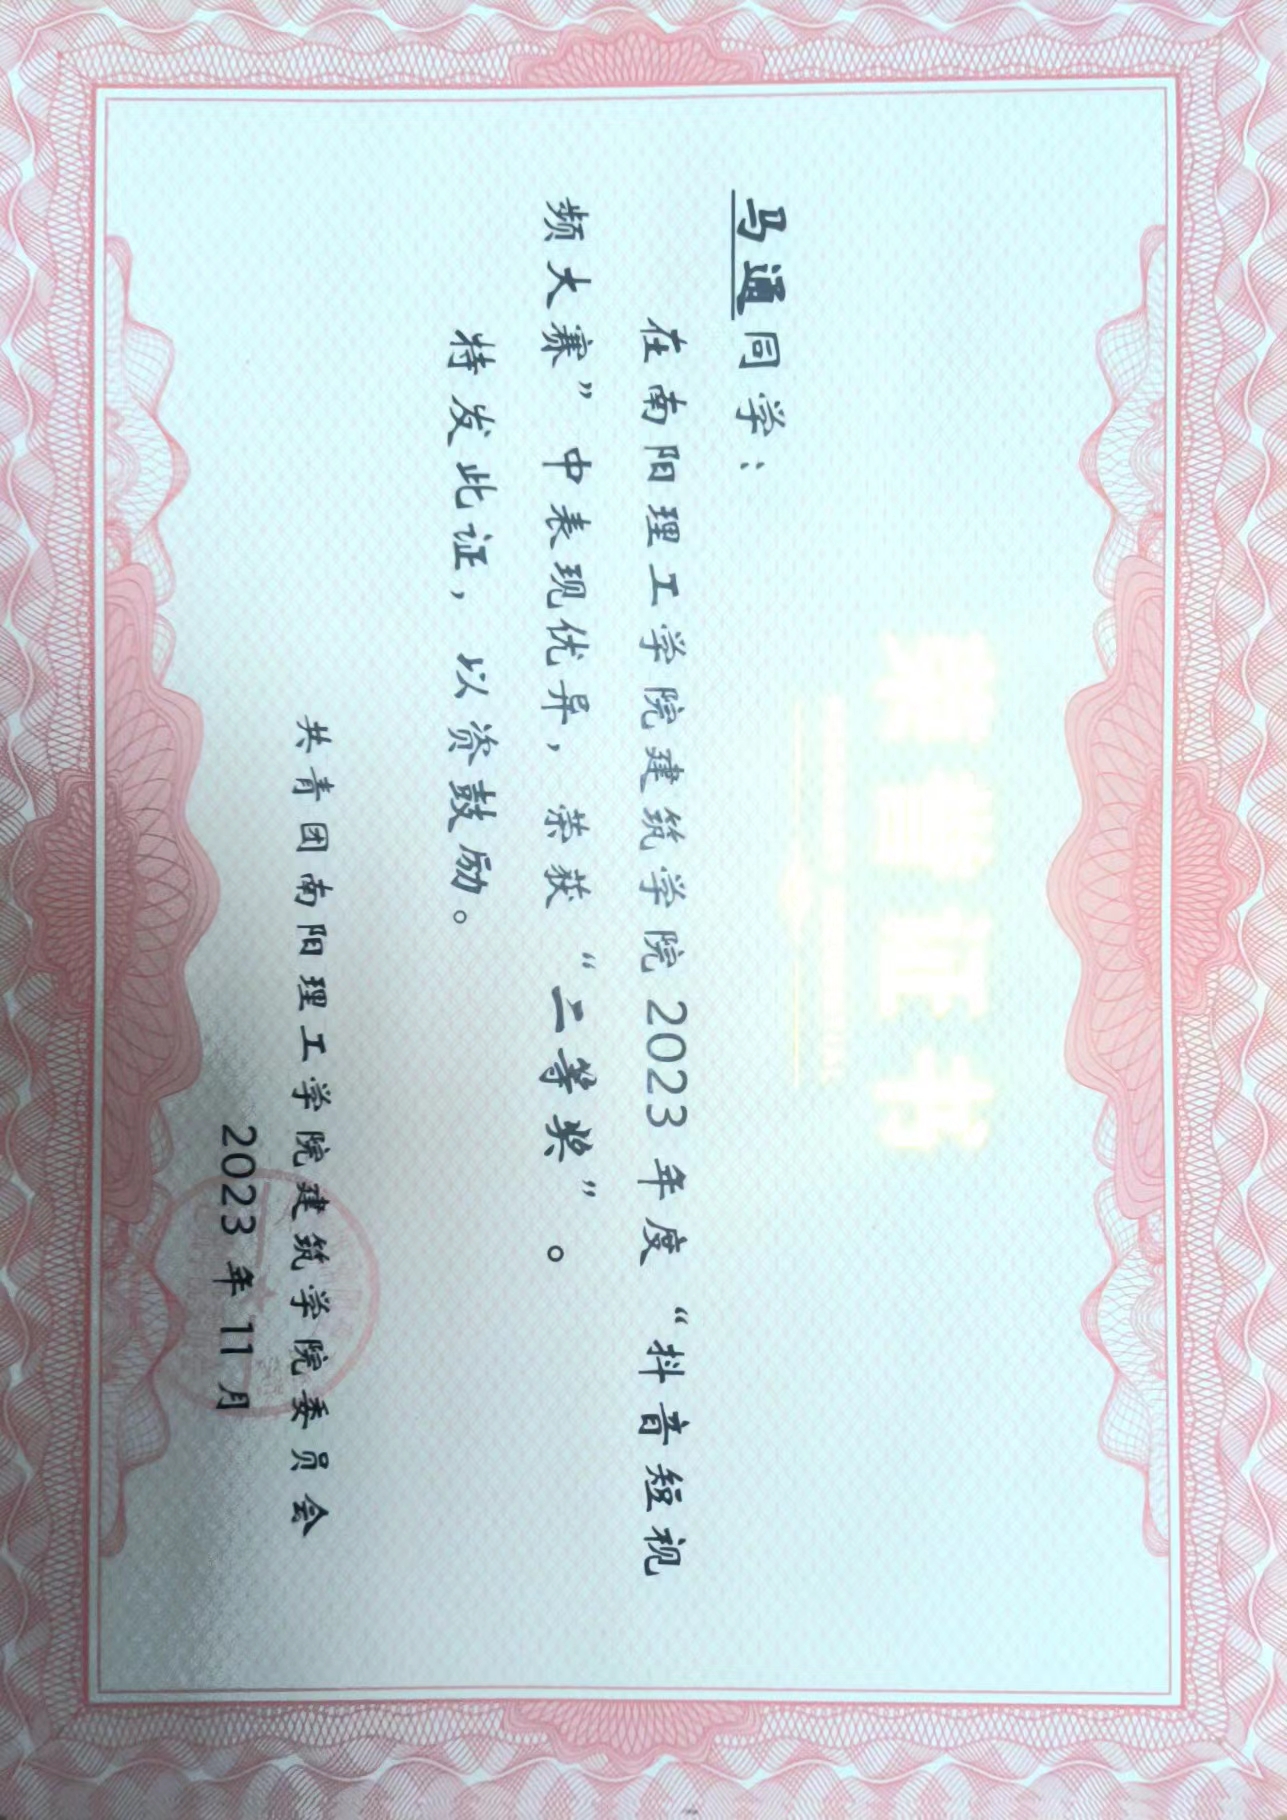 荣誉证书
马通同学：
在南阳理工学院建筑学院2023年度“抖音短视
频大赛”中表现优异，荣获“二等奖”。
特发此证，以资鼓励。
共青团南阳理工学院建筑学院委员会
2023年11月